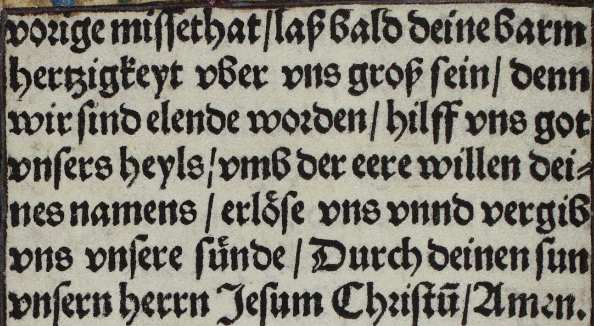 vorige missethat/laß bald deine barm
hertzigkeyt vber vns groß sein/ denn
wir sind elende worden/ hilff vns got
vnsers heyls/vmb der eere willen dei⸗
nes namens / erlöse vns vnnd vergib
vns vnsere sünde / Durch deinen sun
vnsern herrn Jesum Christū/Amen.